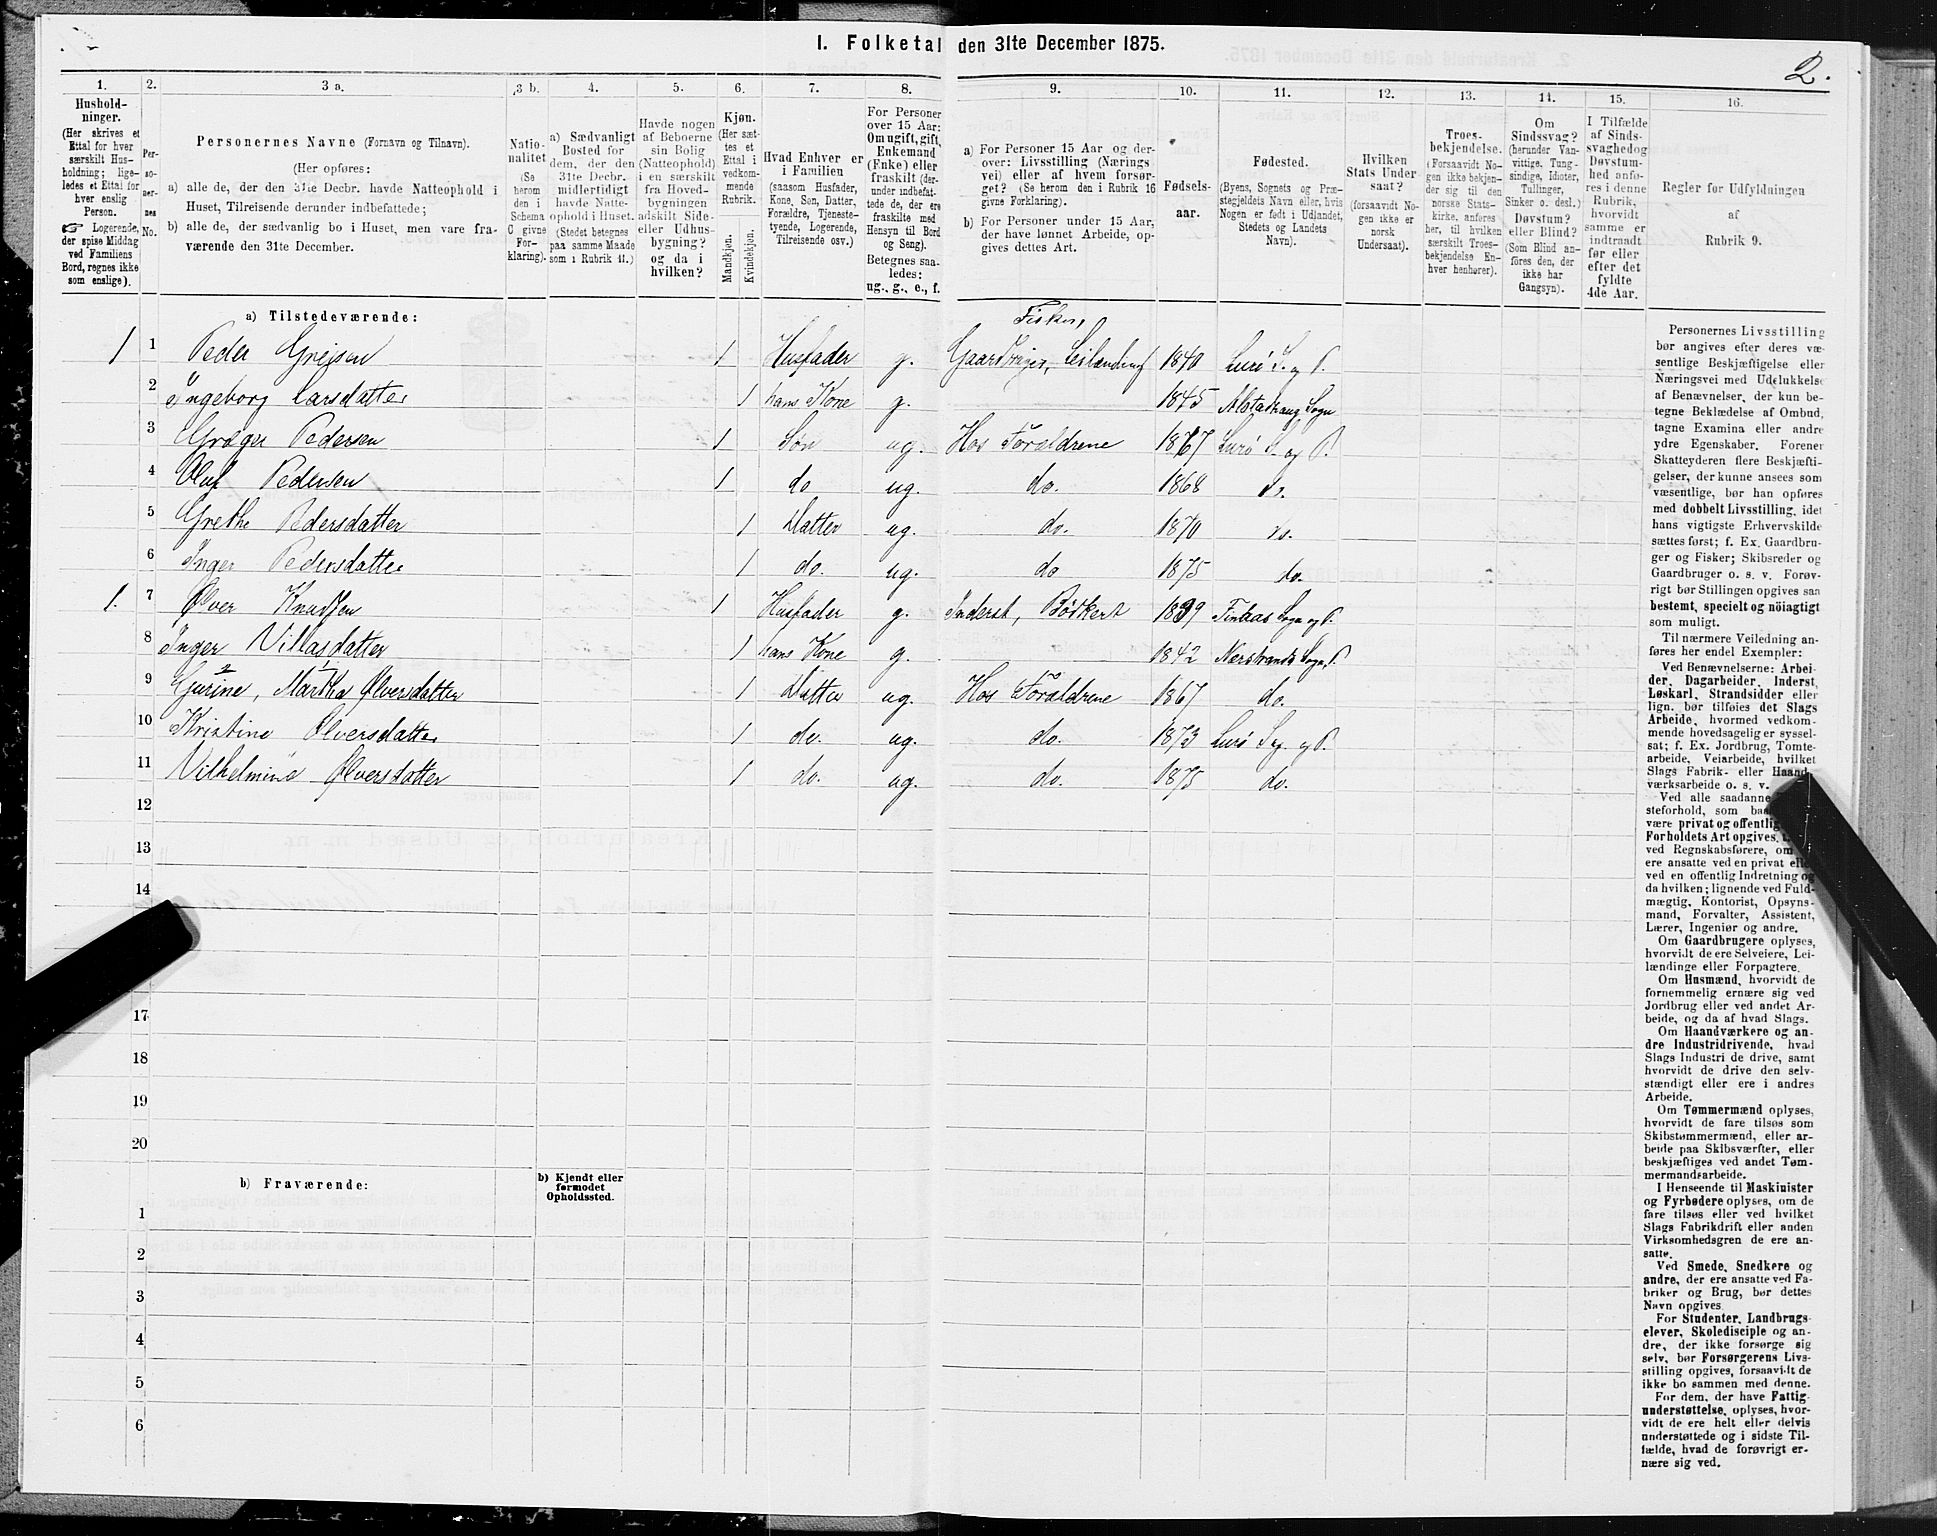 I. Folketal den 31te December 1875.
2.
1. 2. 3 a. 3 b. 4. 5. 6. 7. 8. 9. 10. 11. 12. 13. 14. 15. 16.
Hushold-
ninger.
(Her skrives et
Ettal for hver
særskilt Hus-
holdning; lige-
ledes et Ettal for
hver enslig
Person.
☞ Logerende,
der spise Middag
ved Familiens
Bord, regnes ikke
som enslige).
Per-
so-
ner-
nes
No.
Personernes Navne (Fornavn og Tilnavn).
(Her opføres:
a) alle de, der den 31te Decbr. havde Natteophold i
Huset, Tilreisende derunder indbefattede;
b) alle de, der sædvanlig bo i Huset, men vare fra-
værende den 31te December.
Natio-
nalitet
(Se
herom
den i
Schema
C givne
For-
klaring).
a) Sædvanligt
Bosted for
dem, der den
31te Decbr.
midlertidigt
havde Natte-
ophold i Huset.
(Stedet betegnes
paa samme Maade
som i Rubrik 11.)
Havde nogen
af Beboerne
sin Bolig
(Natteophold)
i en særskilt
fra Hoved-
bygningen
adskilt Side-
eller Udhus-
bygning?
og da i
hvilken?
Kjøn.
(Her sæt-
tes et
Ettal i
vedkom-
mende
Rubrik.
Mandkjøn.
Kvindekjøn.
Hvad Enhver er
i Familien
(saasom Husfader,
Kone, Søn, Datter,
Forældre, Tjeneste-
tyende, Logerende,
Tilreisende osv.)
For Personer
over 15 Aar:
Om ugift, gift,
Enkemand
(Enke) eller
fraskilt (der-
under indbefat-
tede de, der ere
fraskilte med
Hensyn til Bord
og Seng).
Betegnes saa-
ledes:
ug., g., e., f.
a) For Personer 15 Aar og der-
over: Livsstilling (Nærings-
vei) eller af hvem forsør-
get? (Se herom den i Rubrik 16
givne Forklaring).
b) For Personer under 15 Aar,
der have lønnet Arbeide, op-
gives dettes Art.
Fødsels-
aar.
Fødested.
(Byens, Sognets og Præ-
stegjeldets Navn eller, hvis
Nogen er født i Udlandet,
Stedets og Landets
Navn).
Hvilken
Stats Under-
saat?
(forsaavidt No-
gen ikke er
norsk
Undersaat).
Troes-
bekjendelse.
(Forsaavidt No-
gen ikke bekjen-
der sig til den
norske Stats-
kirke, anføres
her, til hvilken
særskilt Troes-
bekjendelse En-
hver henhører).
Om
Sindssvag?
(herunder Van-
vittige, Tung-
sindige, Idioter,
Tullinger,
Sinker o. desl.)
Døvstum?
eller Blind?
(Som Blind an-
føres den, der
ikke har
Gangsyn).
I Tilfælde
af Sinds-
svaghed og
Døvstum-
hed anfø-
res i denne
Rubrik,
hvorvidt
samme er
indtraadt
før eller
efter det
fyldte
4de Aar.
Regler for Udfyldningen
af
Rubrik 9.
a) Tilstedeværende:
1 1 Peder Greisen 1 Husfader g. Fisker, Gaardbruger, Leilænding 1840 Lurø S. og P.
2 Ingeborg Larsdatter 1 hans Kone g. 1845 Alstadhaug Sogn
3 Grøger Pedersen 1 Søn ug. Hos Forældrene 1867 Lurø S. og P.
4 Oluf Pedersen 1 do ug. do. 1868 do.
5 Grethe Pedersdatter 1 Datter ug. do. 1870 do.
6 Inger Pedersdatter 1 do. ug. do 1875 do.
1. 7 Ølver Knudsen 1 Husfader g. Inderst, Bødker 1839 Finaas Sogn og P.
8 Inger Villasdatter 1 hans Kone g. 1842 Nerstrands Sogn, P.
9 Gurine, Martha Ølversdatter 1 Datter ug. Hos Forældrene 1867 do.
10 Kristine Ølversdatter 1 do. ug. do. 1873 Lurø Sg. og P.
11 Vilhelmine Ølversdatter 1 do. ug. do. 1875 do.
12
13
14
17
18
19
20
b) Fraværende:
b) Kjendt eller
formodet
Opholdssted.
1
2
3
4
5
6
Personernes Livsstilling
bør angives efter deres væ-
sentlige Beskjæftigelse eller
Næringsvei med Udelukkelse
af Benævnelser, der kun be-
tegne Beklædelse af Ombud,
tagne Examina eller andre
ydre Egenskaber. Forener
Skatteyderen flere Beskjæfti-
gelser, der kunne ansees som
væsentlige, bør han opføres
med dobbelt Livsstilling, idet
hans vigtigste Erhvervskilde
sættes først; f. Ex. Gaardbru-
ger og Fisker; Skibsreder og
Gaardbruger o. s. v. Forøv-
rigt bør Stillingen opgives saa
bestemt, specielt og nöiagtigt
som muligt.
Til nærmere Veiledning an-
føres her endel Exempler:
Ved Benævnelserne: Arbei-
der, Dagarbeider, Inderst,
Løskarl, Strandsidder eller
lign. bør tilføies det Slags
Arbeide, hvormed vedkom-
mende hovedsagelig er syssel-
sat; f. Ex. Jordbrug, Tomte-
arbeide, Veiarbeide, hvilket
Slags Fabrik- eller Haand-
værksarbeide o. s. v.
Ved alle saadanne
steforhold, som baade
være privat og offentlig,
Forholdets Art opgives,
ved Regnskabsførere, om
ere ansatte ved en privat eller
ved en offentlig Indretning og
da hvilken; lignende ved Fuld-
mægtig, Kontorist, Opsyns-
mand, Forvalter, Assistent,
Lærer, Ingeniør og andre.
Om Gaardbrugere oplyses,
hvorvidt de ere Selveiere, Lei-
lændinge eller Forpagtere.
Om Husmænd, hvorvidt de
fornemmelig ernære sig ved
Jordbrug eller ved andet Ar-
beide, og da af hvad Slags.
Om Haandværkere og an-
dre Industridrivende, hvad
Slags Industri de drive, samt
hvorvidt de drive den selv-
stændigt eller ere i andres
Arbeide.
Om Tømmermænd oplyses,
hvorvidt de fare tilsøs som
Skibstømmermænd, eller ar-
beide paa Skibsværfter, eller
beskjæftiges ved andet Tøm-
mermandsarbeide.
I Henseende til Maskinister
og Fyrbødere oplyses, om de
fare tilsøs eller ved hvilket
Slags Fabrikdrift eller anden
Virksomhedsgren de ere an-
satte.
Ved Smede, Snedkere og
andre, der ere ansatte ved Fa-
briker og Brug, bør dettes
Navn opgives.
For Studenter, Landbrugs-
elever, Skoledisciple og an-
dre, der ikke forsørge sig
selv, bør Forsørgerens Livs-
stilling opgives, forsaavidt de
ikke bo sammen med denne.
For dem, der have Fattig-
understøttelse, oplyses, hvor-
vidt de ere helt eller delvis
understøttede og i sidste Til-
fælde, hvad de forøvrigt er-
nære sig ved.